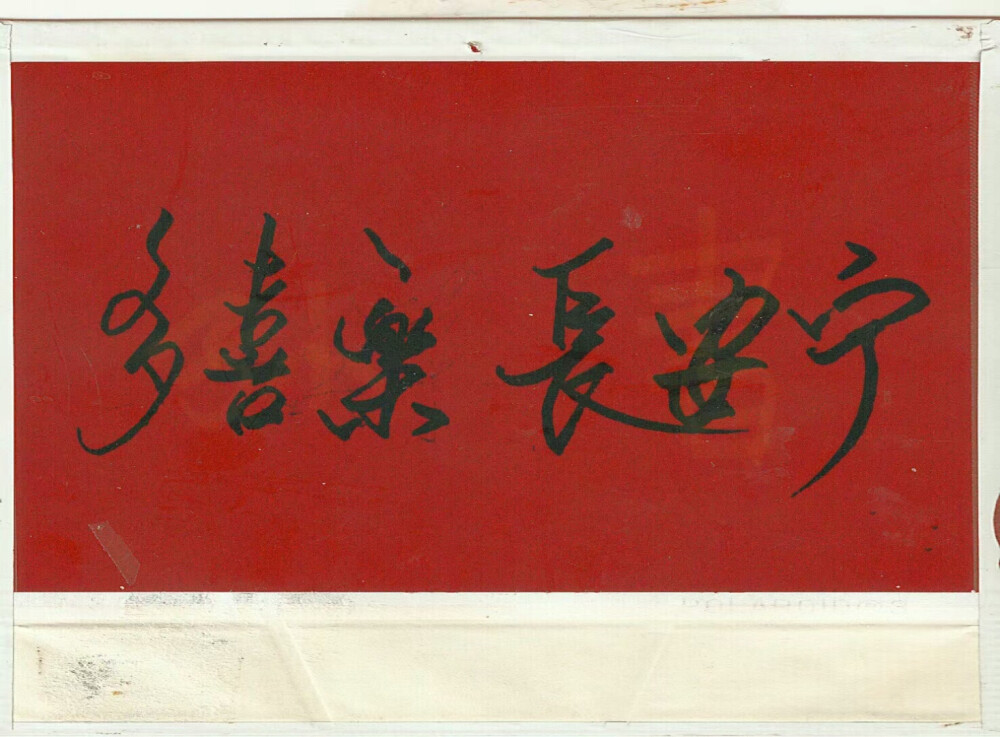 多喜樂 長安宁